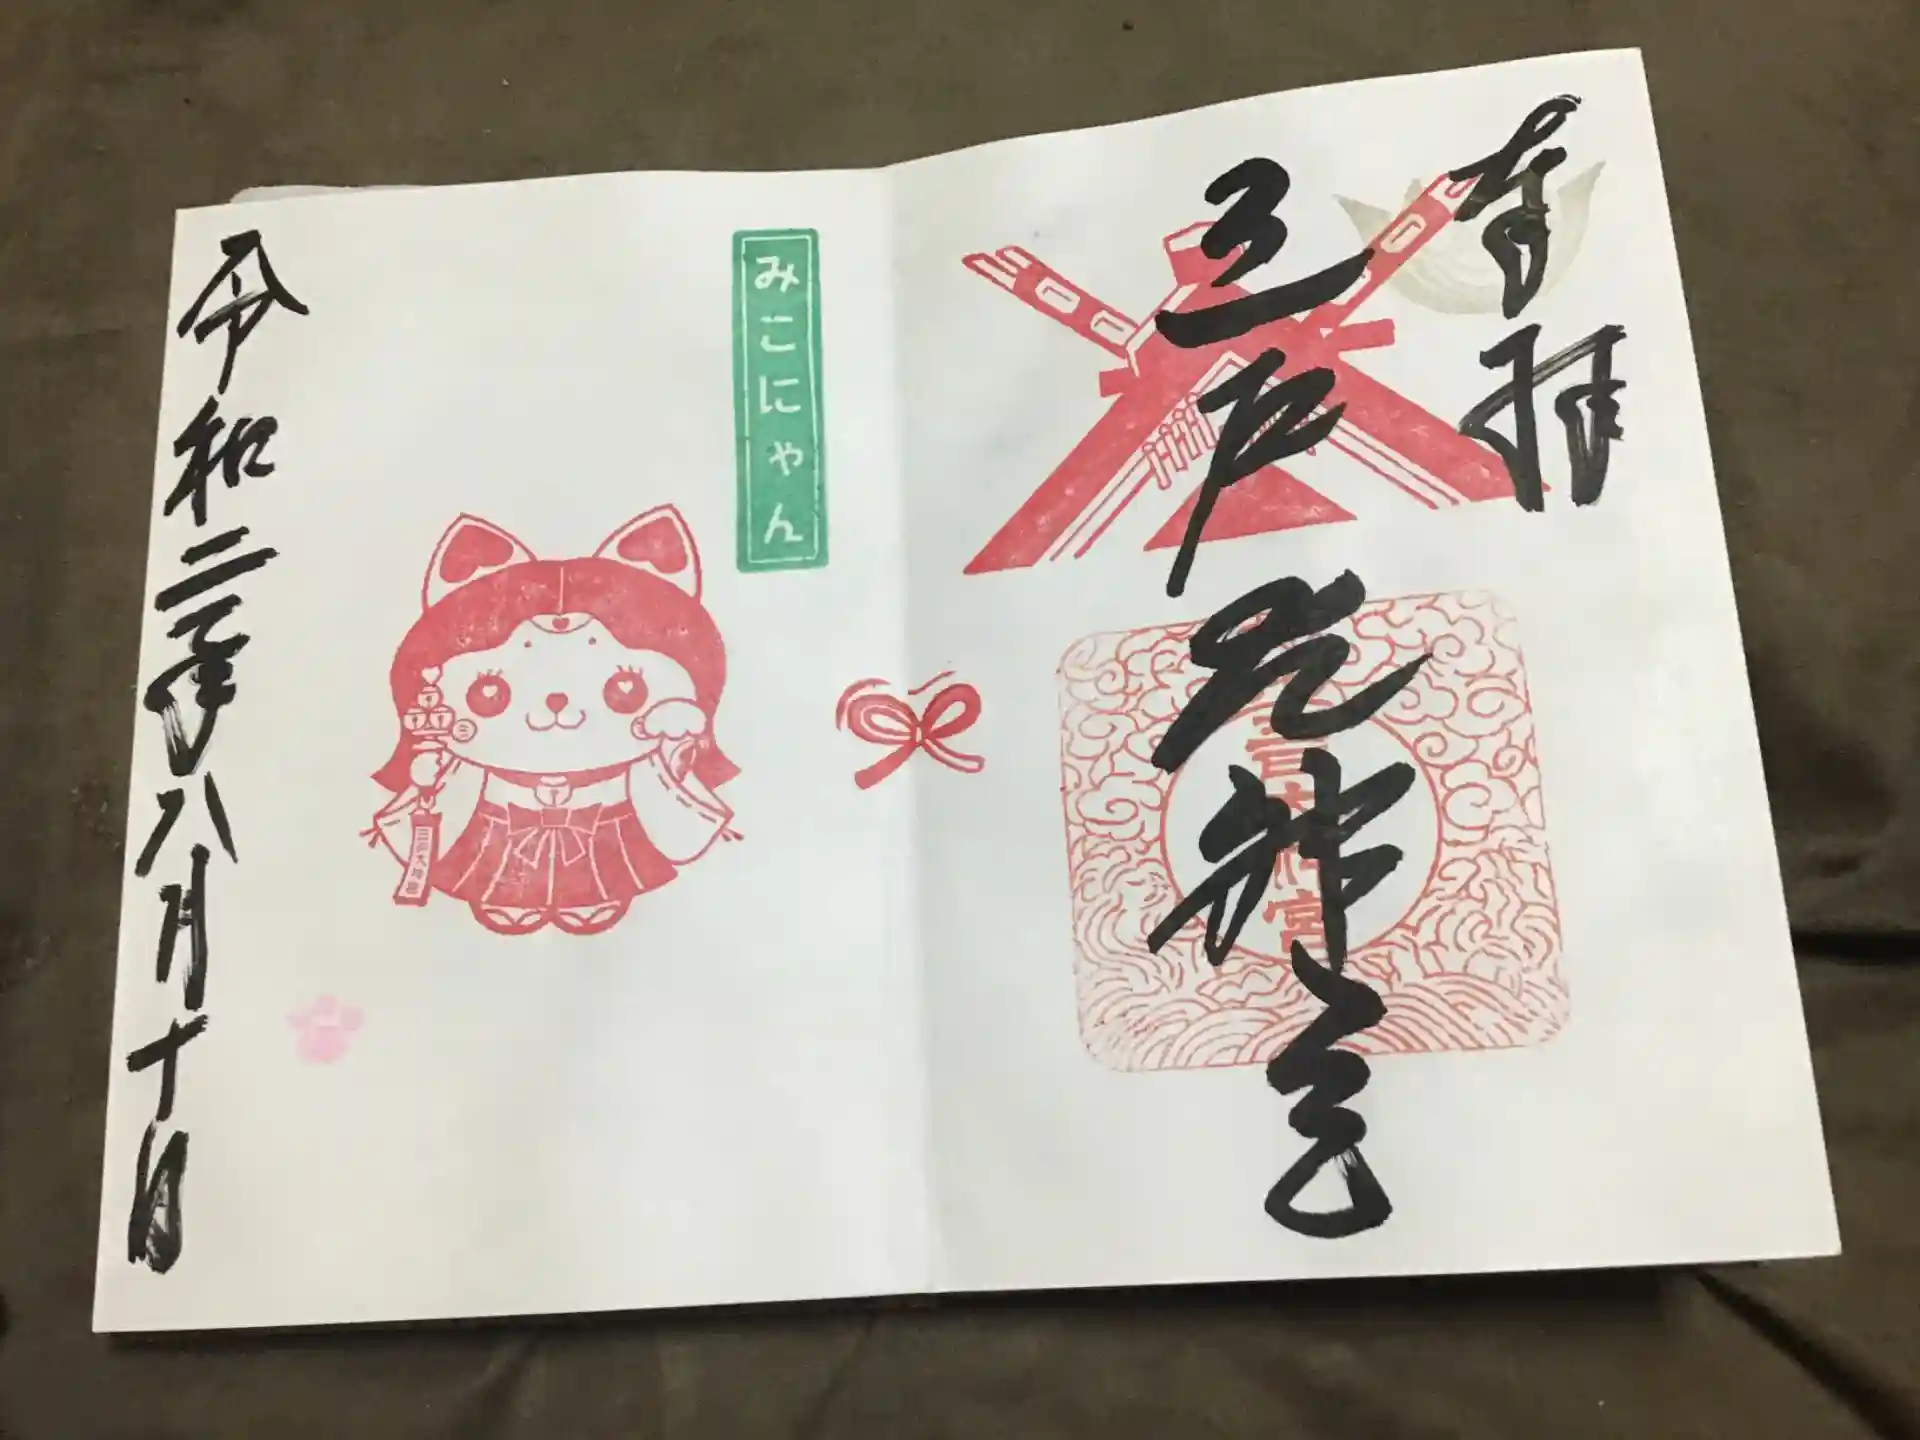 奉拝
三戸大神宮
みこにゃん
三戸大神宮
令和二年八月十日